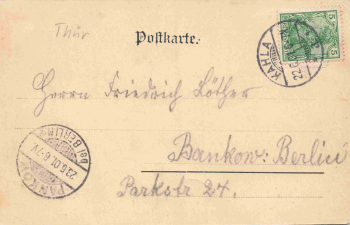 Thür
Postkarte.
5
5
KAHLA
22.6.
Herrn Friedrich Löther
Bankow-Berlin
Parkstr 24.
PANKOW
bei BERLIN
22.6.01.6-7V.